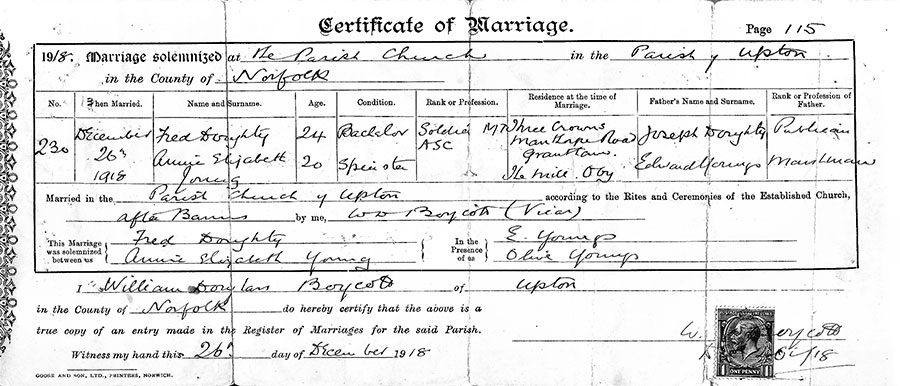 Certificate of Marriage.
Page 115
1918. Marriage solemnized at The Parish Church in the Parish of Upton
in the County of Norfolk
No. When Married. Name and Surname. Age. Condition. Rank or Profession. Residence at the time of Marriage. Father's Name and Surname. Rank or Profession of Father.
230 December 26th 1918
Fred Doughty 24 Bachelor Soldier MT ASC Three Crowns Manthorpe Road Grantham Joseph Doughty Publican
Annie Elizabeth Young 20 Spinster The Mill. Oby Edward Youngs Marshman
Married in the Parish Church of Upton according to the Rites and Ceremonies of the Established Church,
after Banns by me, WD Boycott (Vicar)
This Marriage was solemnized between us
Fred Doughty
Annie Elizabeth Young
In the Presence of us
E. Youngs
Olive Youngs
I William Douglas Boycott of Upton
in the County of Norfolk do hereby certify that the above is a
true copy of an entry made in the Register of Marriages for the said Parish.
Witness my hand this 26th day of December 1918
W.
ONE PENNY
GOOSE AND SON, LTD., PRINTERS, NORWICH.